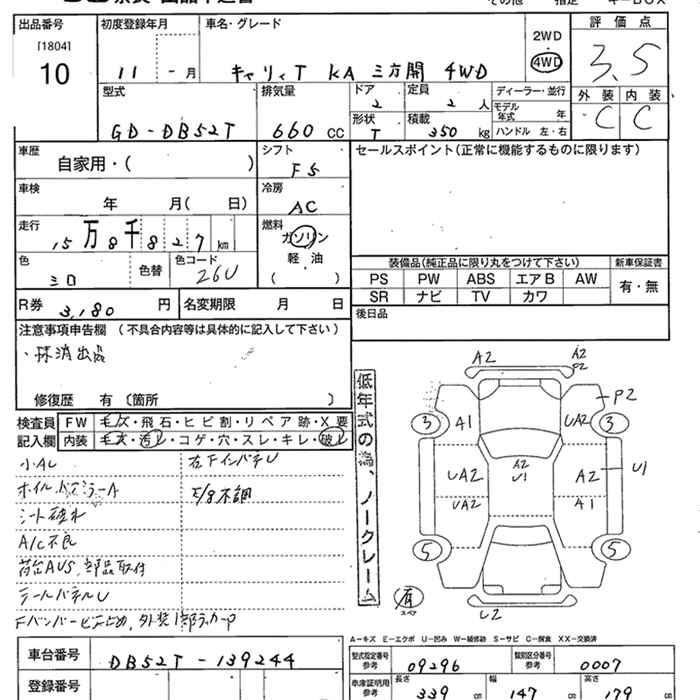 出品番号 初度登録年月 車名・グレード 評価点
[1804]
10 11 - 月 キャリィT KA 三方開 4WD 2WD 4WD 3.5
型式 排気量 ドア 2 定員 2 人 ディーラー・並行 外装 内装
GD-DB52T 660 cc 形状 T 積載 350 kg モデル年式 年 C C
ハンドル 左・右
車歴 自家用・( ) シフト F5 セールスポイント(正常に機能するものに限ります)
車検 年 月( 日) 冷房 AC
走行 15万8千827km 燃料 ガソリン
軽油
( )
色 シロ 色替 色コード 26U
装備品(純正品に限り丸をつけて下さい) 新車保証書
PS PW ABS エアB AW 有・無
SR ナビ TV カワ
R券 3,180 円 名変期限 月 日 後日品
注意事項申告欄 (不具合内容等は具体的に記入して下さい)
・抹消出品
修復歴 有(箇所 )
検査員 FW キズ・飛石・ヒビ割・リペア跡・X要
記入欄 内装 キズ・汚レ・コゲ・穴・スレ・キレ・破レ
小AU 左下インパネU
5/8不調
シート破れ
A/C不良
荷台AUS,部品取付
テールパネルU
低年式の為、ノークレーム
A2 A2
P2
P2
3 A1 UA2 3
UA2 A2
U1 A2 U1
UA2 A1
5 5
有
スペア U2
A-キズ E-エクボ U-凹み W-補修跡 S-サビ C-腐食 XX-交換済
車台番号 DB52T-139244 型式指定番号
参考 09296 類別区分番号
参考 0007
登録番号 車庫証明用
参考 長さ 339 幅 147 高さ 179